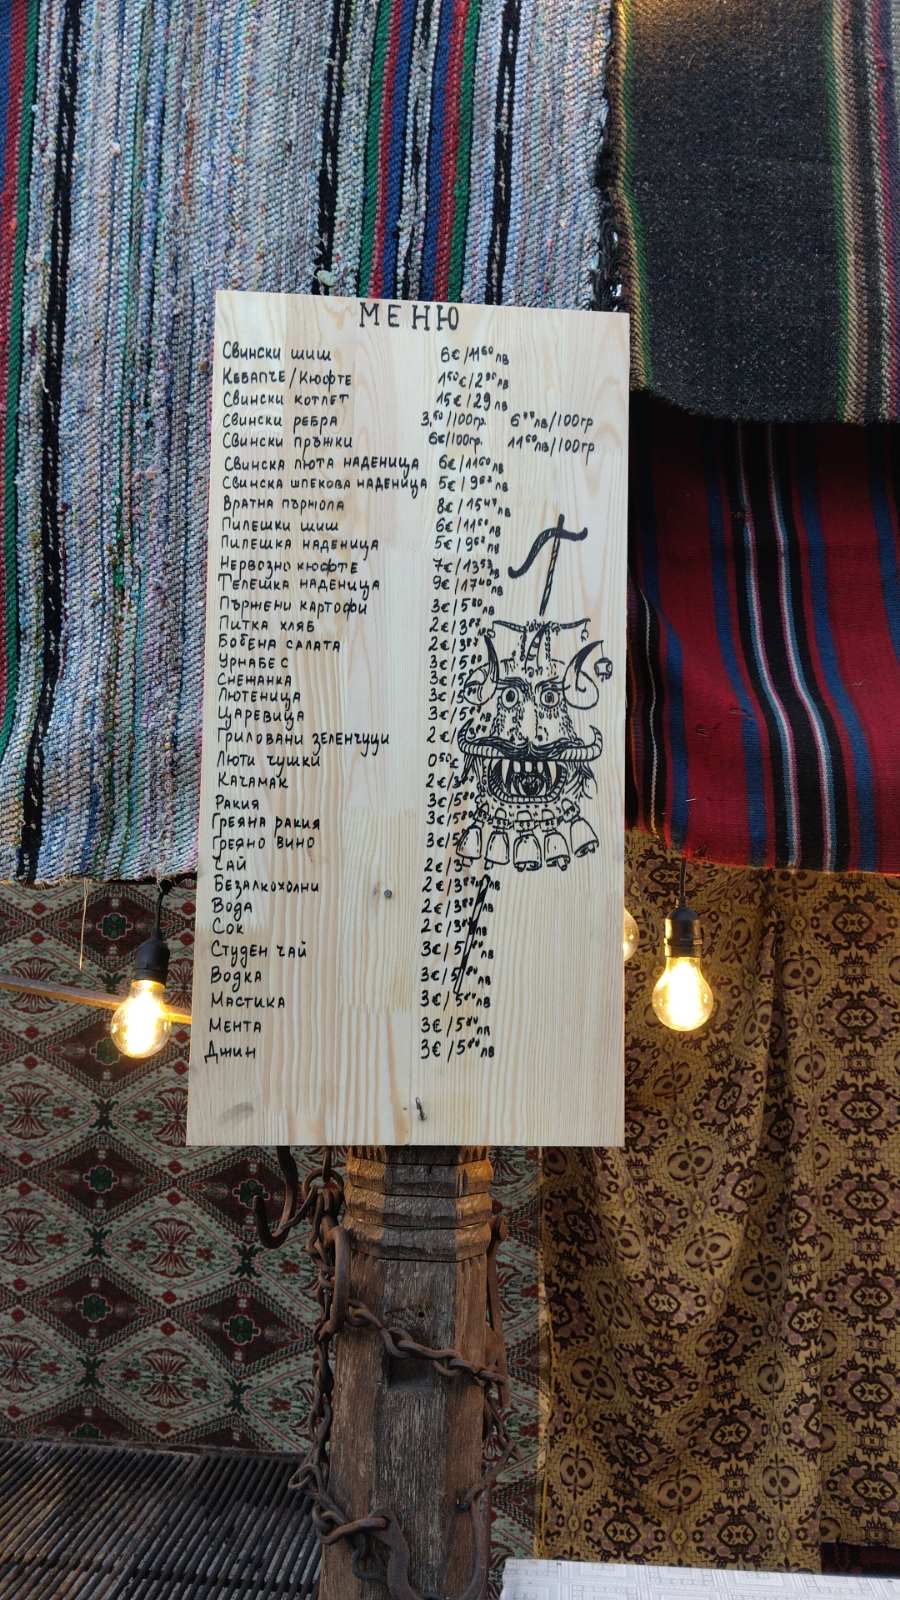 МЕНЮ
Свински шиш 6€/11⁶⁰лв
Кебапче/Кюфте 1⁵⁰€/2⁹⁰лв
Свински котлет 15€/29лв
Свински ребра 3,⁵⁰/100гр. 6⁷⁷лв/100гр
Свински пръжки 6€/100гр. 11⁶⁰лв/100гр
Свинска люта наденица 6€/11⁶⁰лв
Свинска шпекова наденица 5€/9⁶²лв
Вратна пържола 8€/15⁴⁷лв
Пилешки шиш 6€/11⁶⁰лв
Пилешка наденица 5€/9⁶²лв
Нервозно кюфте 7€/13⁵³лв
Телешка наденица 9€/17⁴⁰лв
Пържени картофи 3€/5⁸⁰лв
Питка хляб 2€/3⁸⁷лв
Бобена салата 2€/3⁸⁷лв
Урнабес 3€/5⁸⁰
Снежанка 3€/5
Лютеница 3€/5⁸⁰
Царевица 3€/5⁸⁰лв
Гриловани зеленчуци 2€/
Люти чушки 0⁵⁰€
Качамак 2€/3⁸⁷
Ракия 3€/5⁸⁰
Греяна ракия 3€/5⁸⁰
Греяно вино 3€/5
Чай 2€/3
Безалкохолни 2€/3⁸⁷лв
Вода 2€/3⁸⁷лв
Сок 2€/3⁸⁷лв
Студен чай 3€/5⁸⁰лв
Водка 3€/5⁸⁰лв
Мастика 3€/5⁸⁰лв
Мента 3€/5⁸⁰лв
Джин 3€/5⁸⁰лв